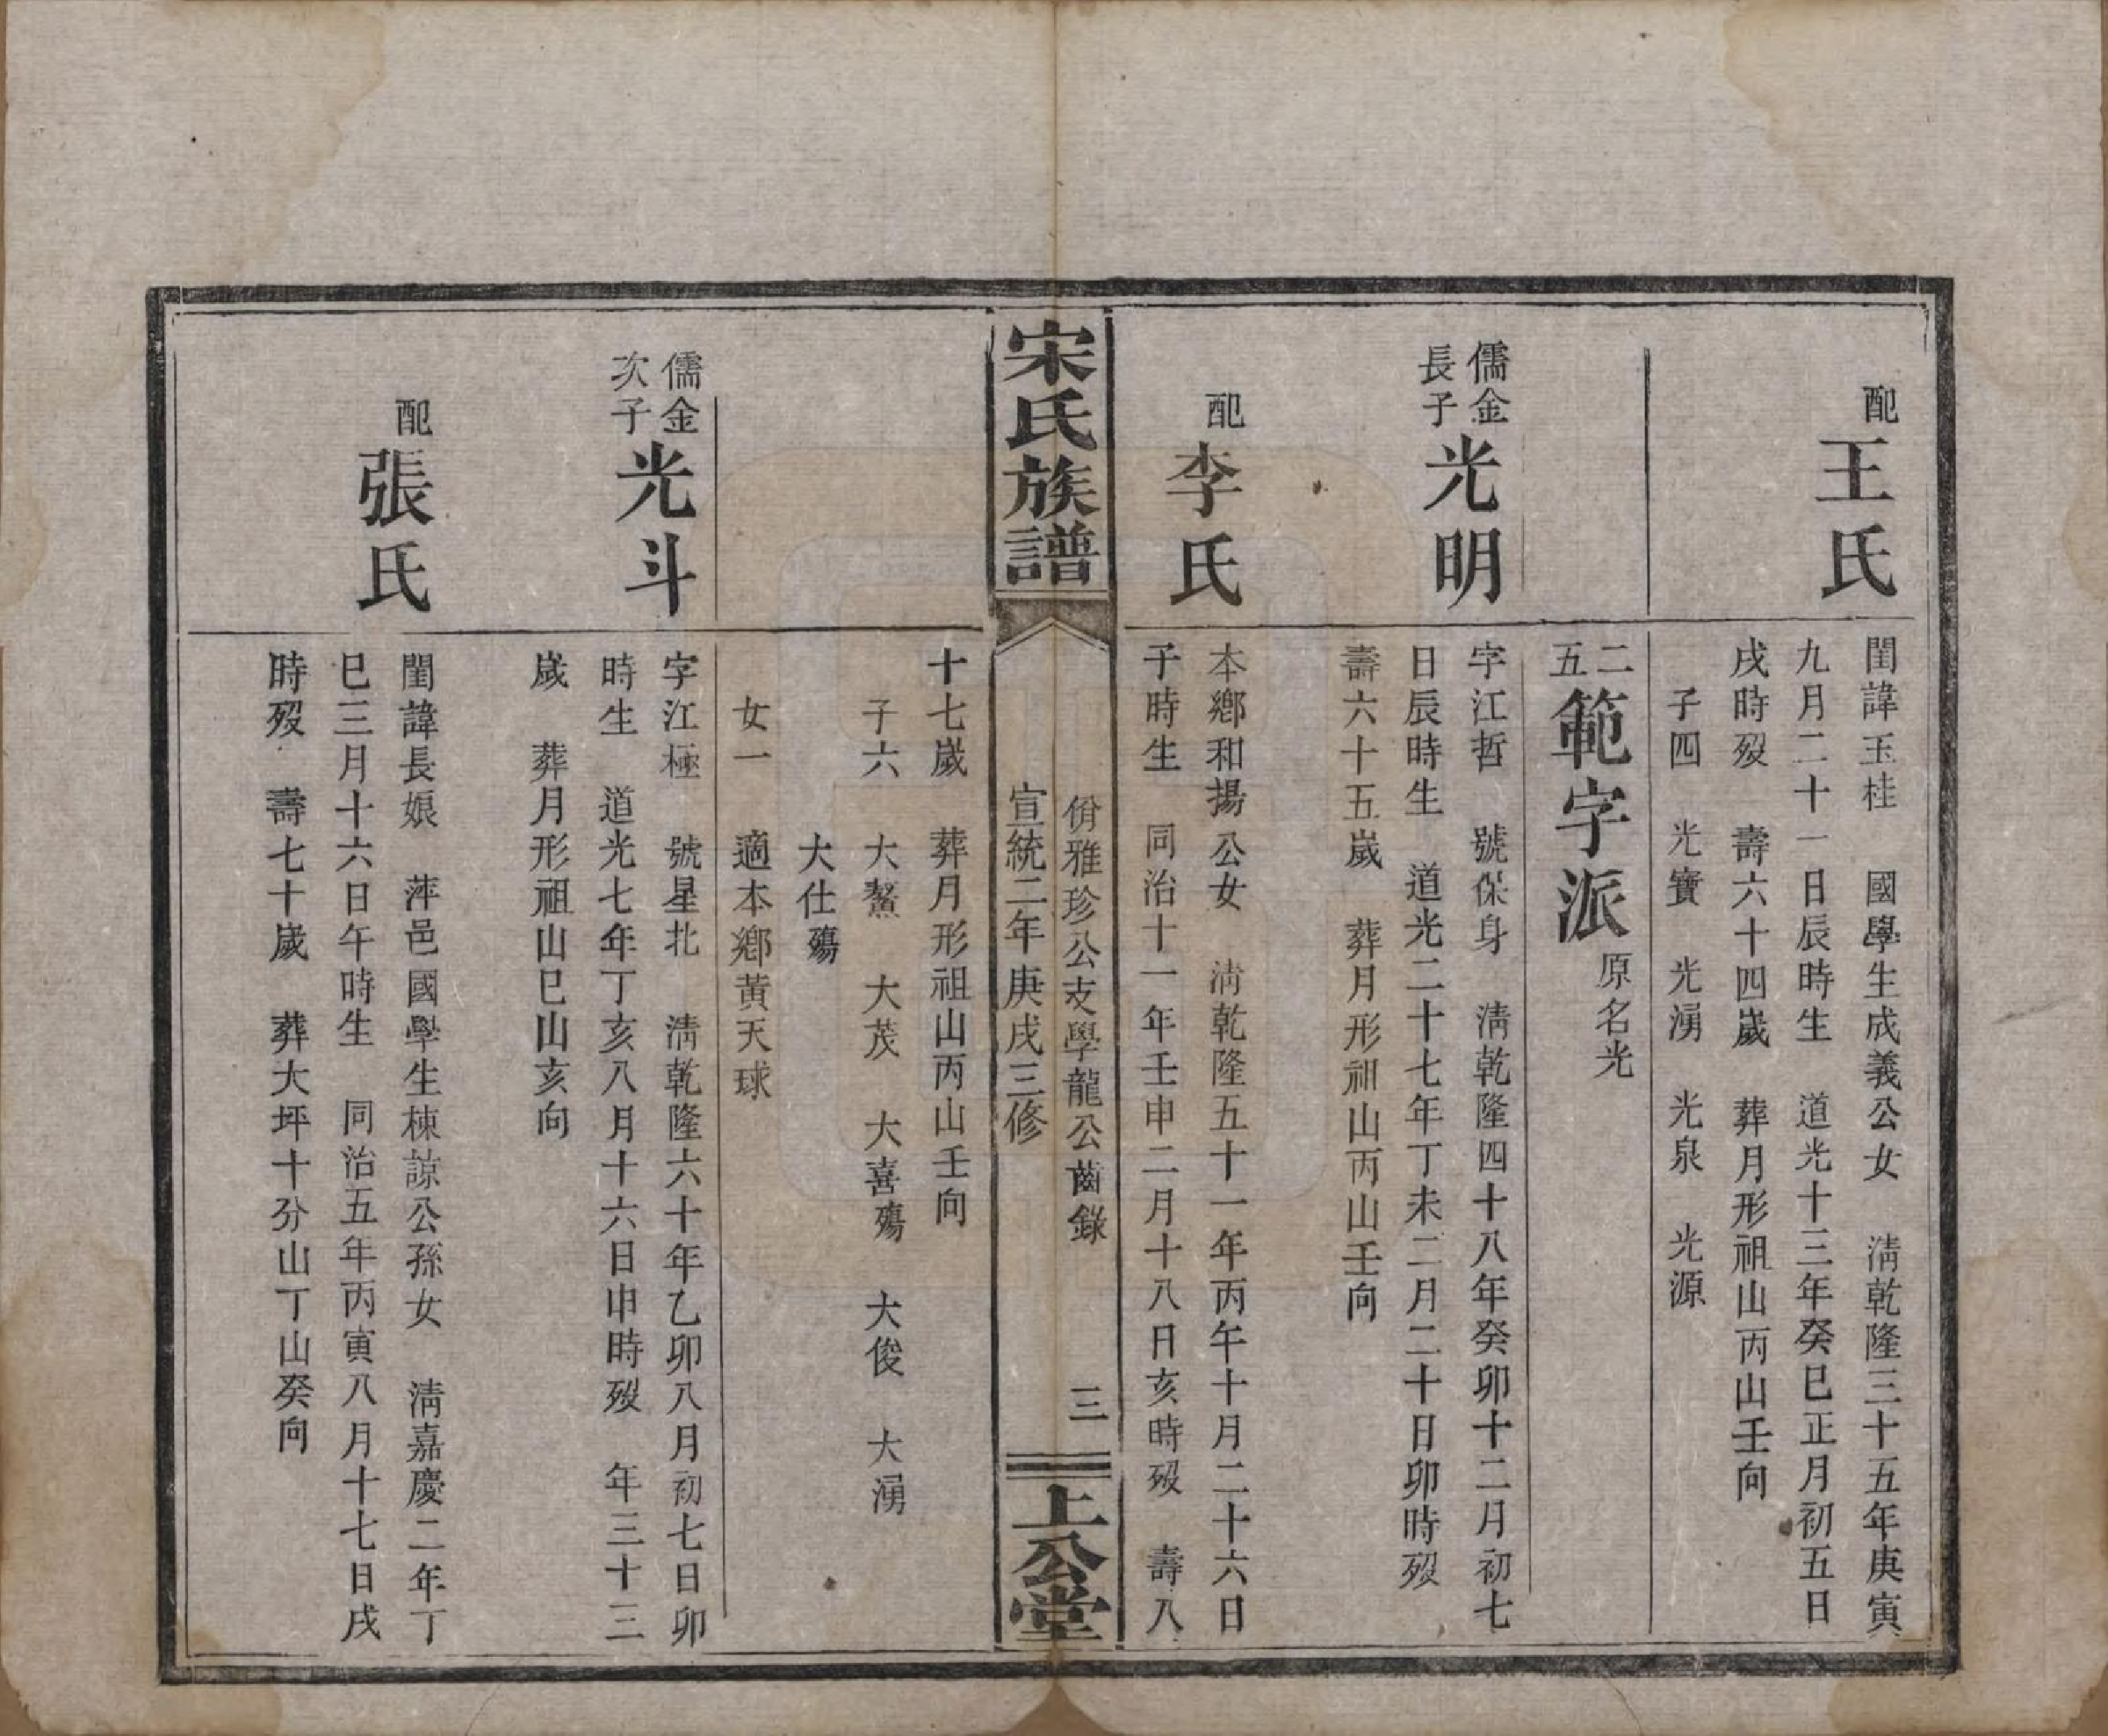 配王氏
閨諱玉桂　國學生成義公女　淸乾隆三十五年庚寅
九月二十一日辰時生　道光十三年癸巳正月初五日
戌時歿　壽六十四歲　葬月形祖山丙山壬向
子四　光寶　光湧　光泉　光源
二五範字派原名光
儒金長子光明
字江哲　號保身　淸乾隆四十八年癸卯十二月初七
日辰時生　道光二十七年丁未二月二十日卯時歿
壽六十五歲　葬月形祖山丙山壬向
配李氏
本鄉和揚公女　淸乾隆五十一年丙午十月二十六日
子時生　同治十一年壬申二月十八日亥時歿　壽八
宋氏族譜
佾雅珍公支學龍公齒錄　三
宣統二年庚戌三修
上公堂
十七歲　葬月形祖山丙山壬向
子六　大鰲　大茂　大喜殤　大俊　大湧
大仕殤
女一　適本鄉黃天球
儒金次子光斗
字江極　號星北　淸乾隆六十年乙卯八月初七日卯
時生　道光七年丁亥八月十六日申時歿　年三十三
歲　葬月形祖山巳山亥向
配張氏
閨諱長娘　萍邑國學生棟諒公孫女　淸嘉慶二年丁
巳三月十六日午時生　同治五年丙寅八月十七日戌
時歿　壽七十歲　葬大坪十分山丁山癸向